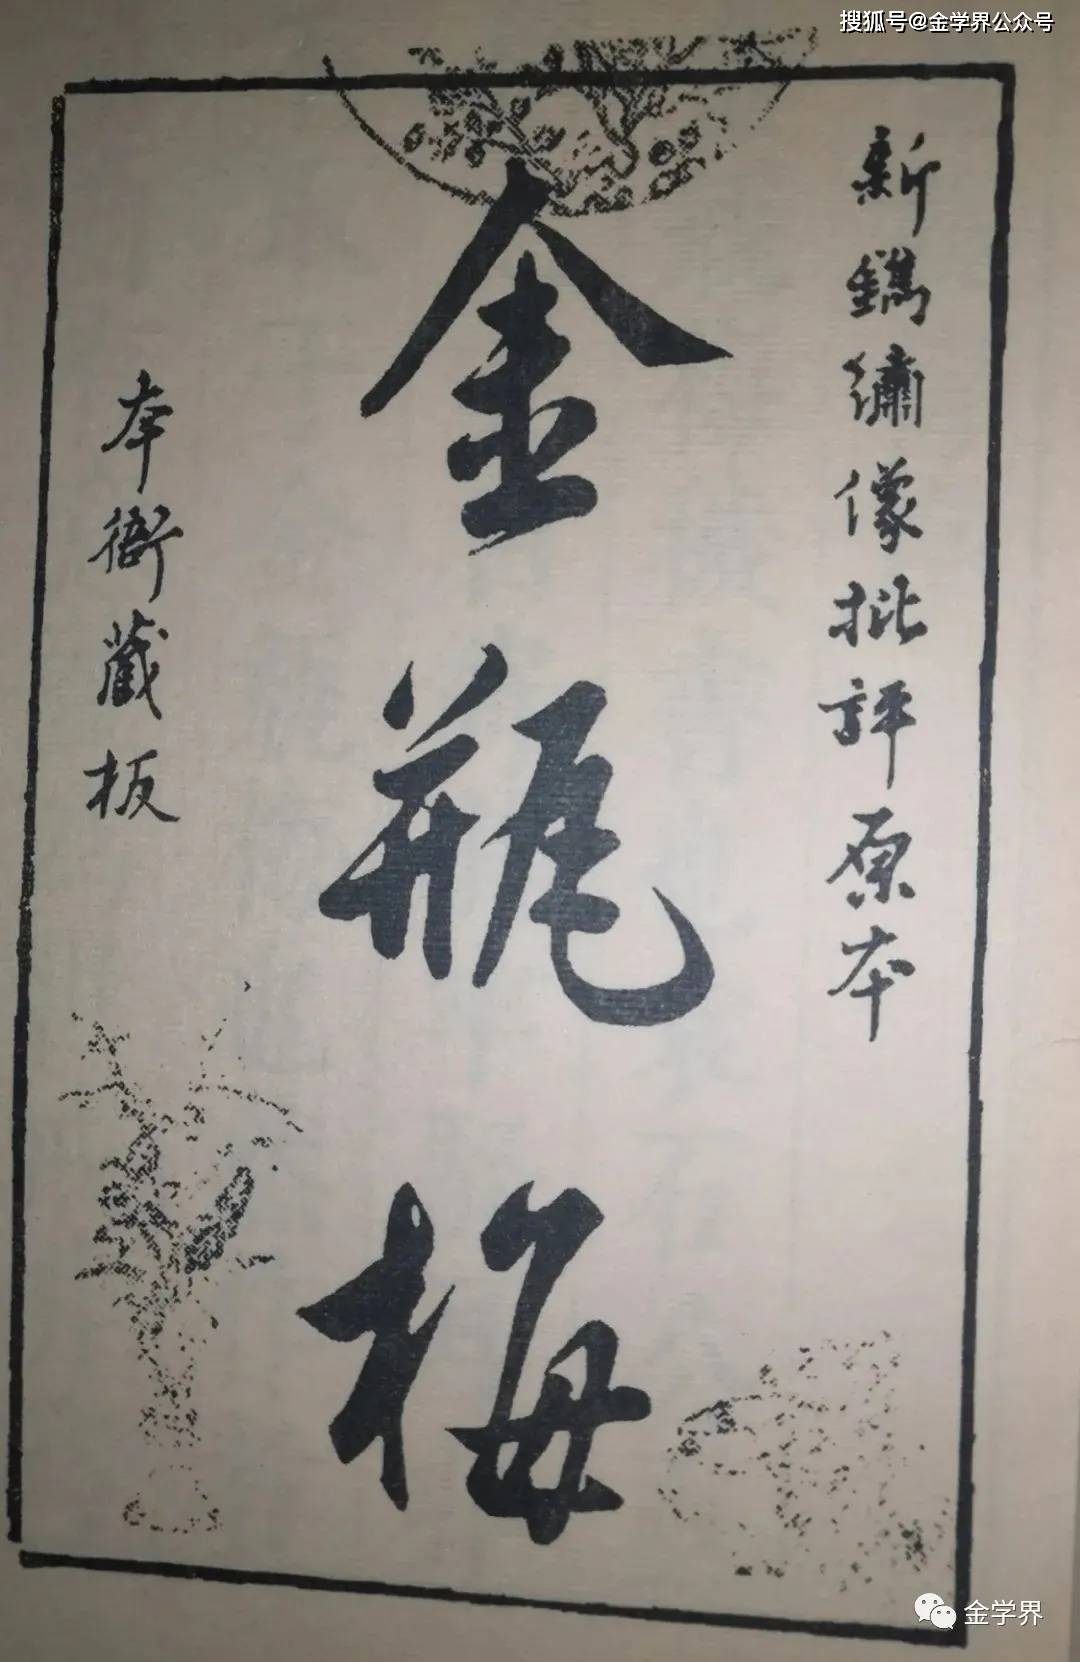 搜狐号@金学界公众号
新鐫繡像批評原本
金瓶梅
本衙藏板
金学界